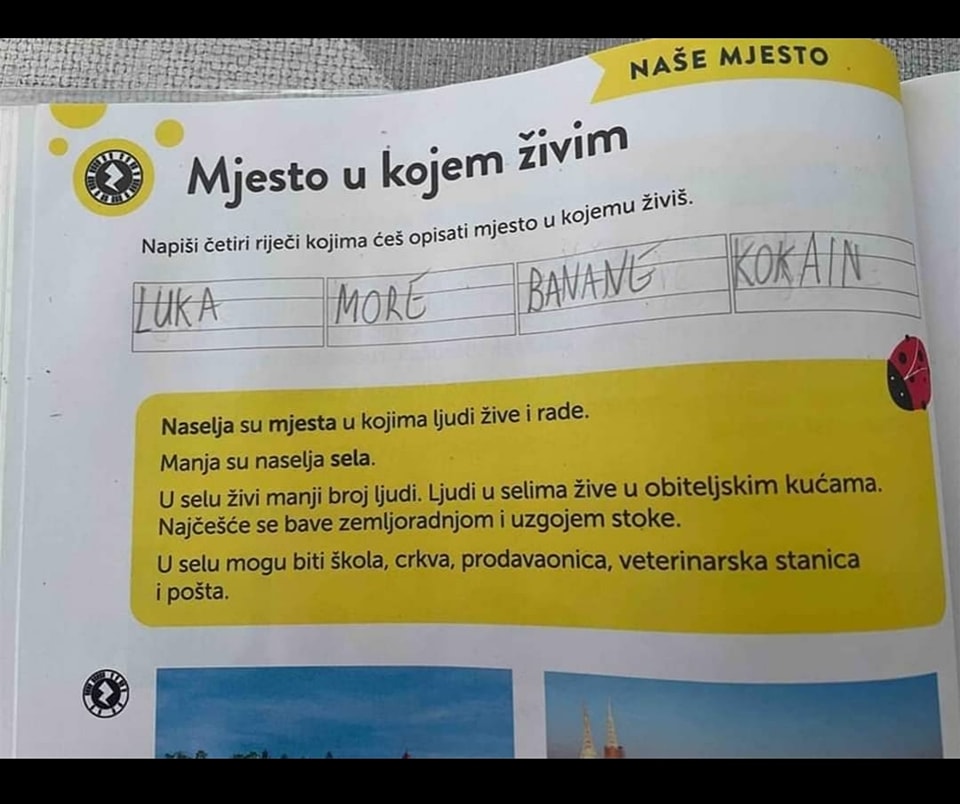 NAŠE MJESTO
Mjesto u kojem živim
Napiši četiri riječi kojima ćeš opisati mjesto u kojemu živiš.
LUKA MORE BANANE KOKAIN
Naselja su mjesta u kojima ljudi žive i rade.
Manja su naselja sela.
U selu živi manji broj ljudi. Ljudi u selima žive u obiteljskim kućama.
Najčešće se bave zemljoradnjom i uzgojem stoke.
U selu mogu biti škola, crkva, prodavaonica, veterinarska stanica
i pošta.